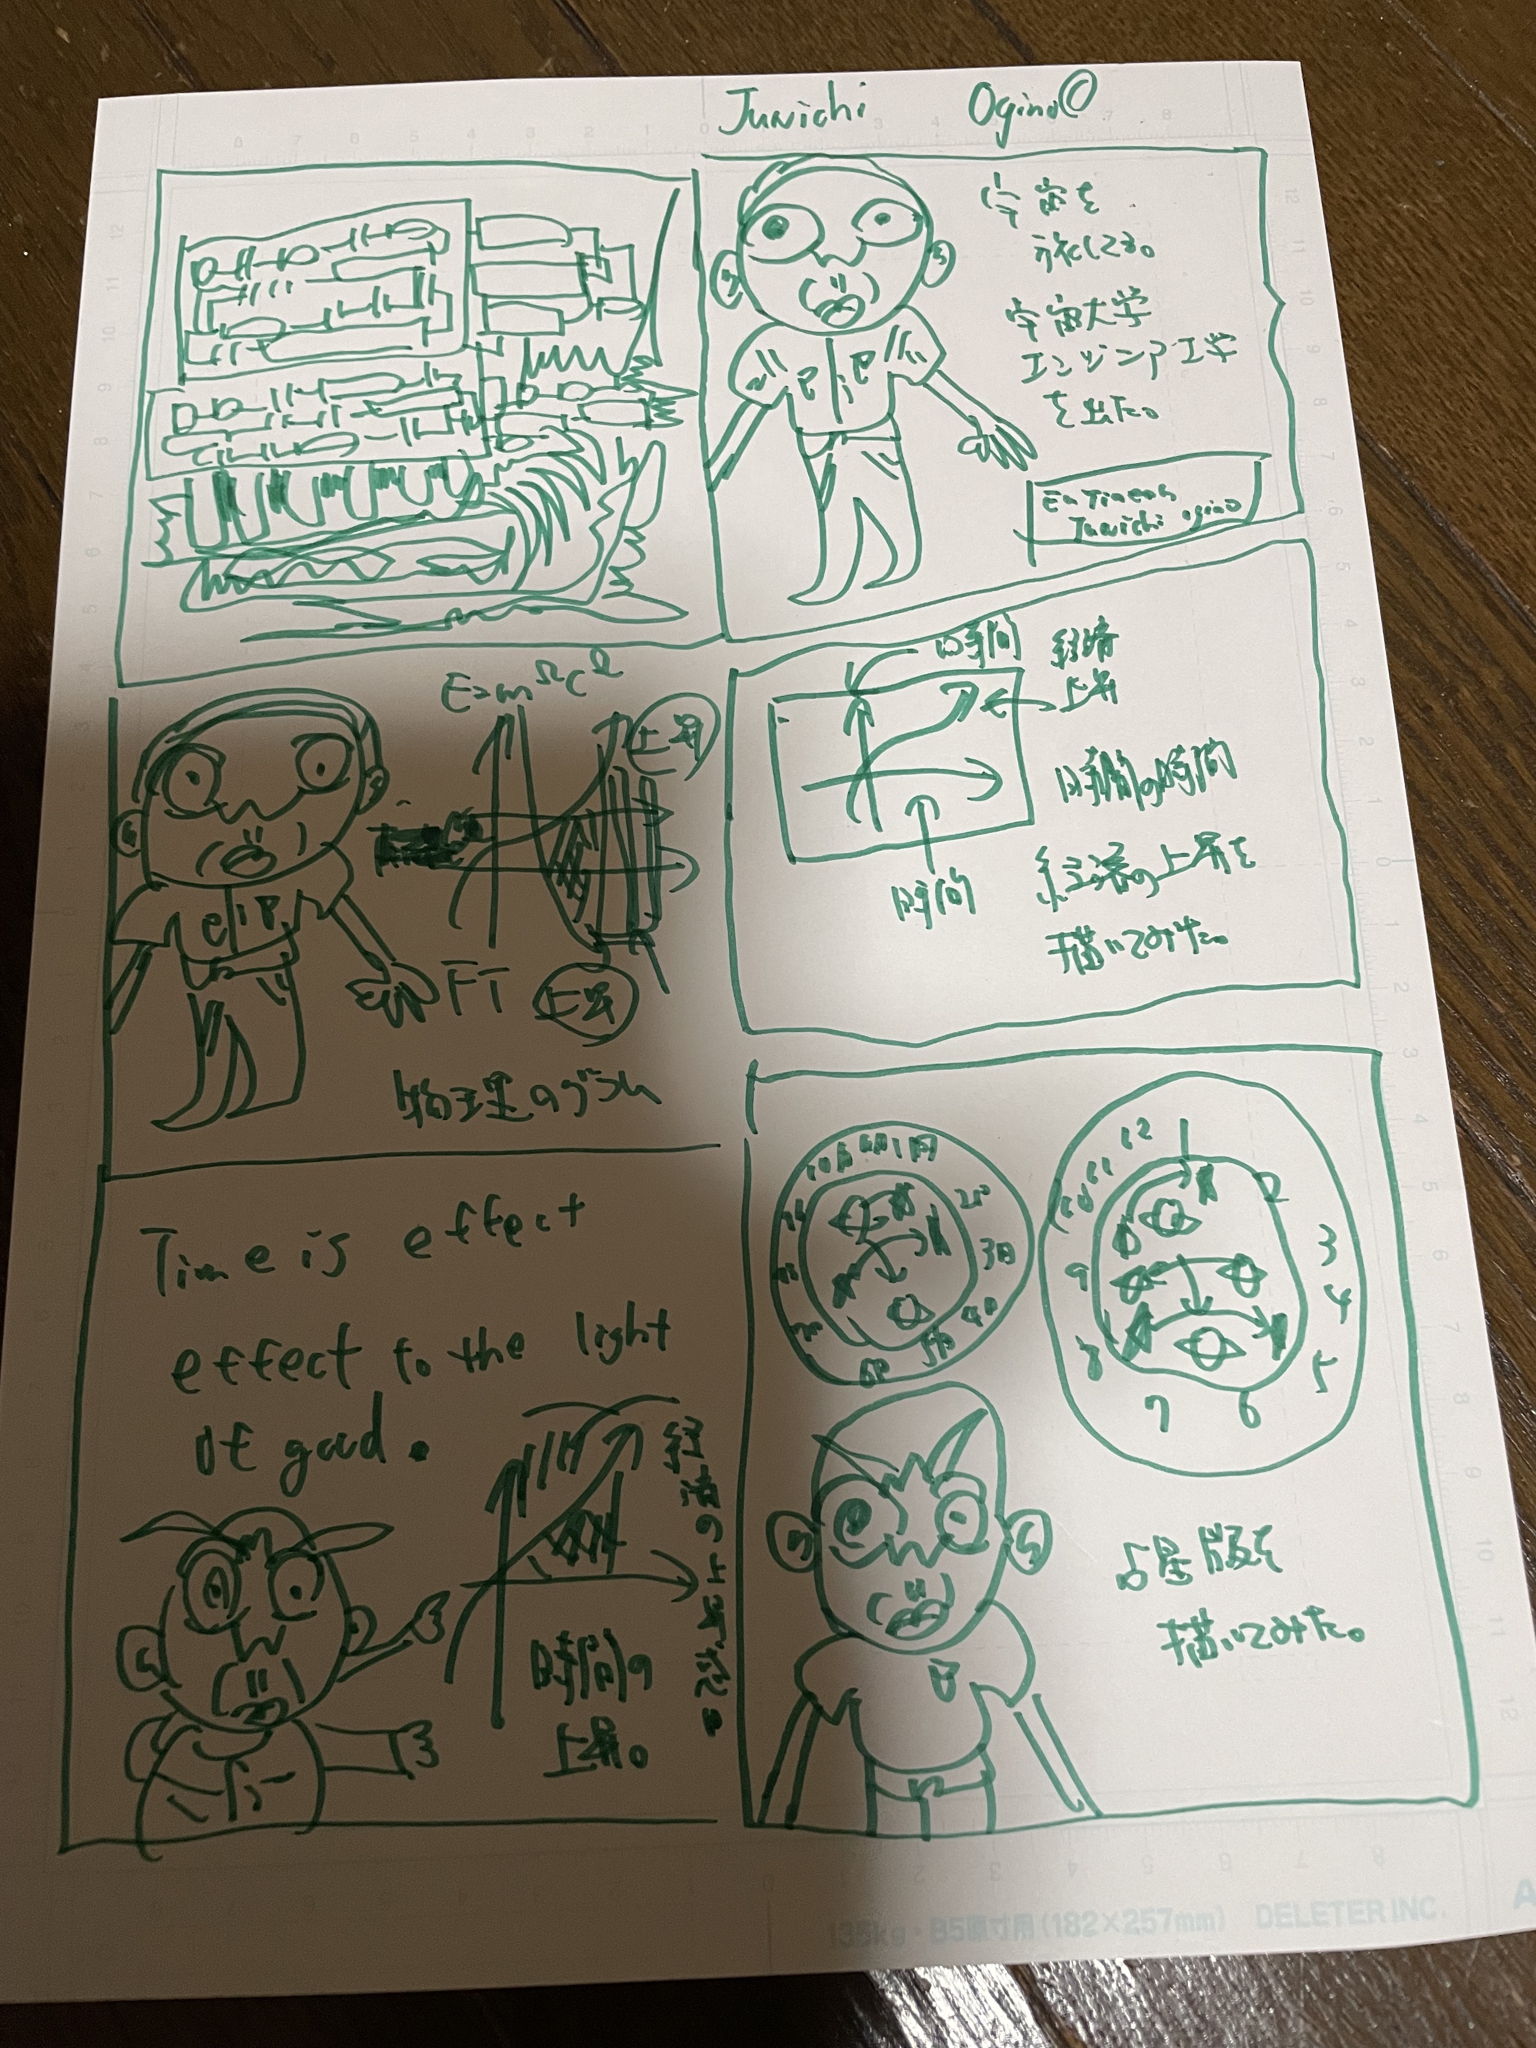 Junichi Ogino©
宇宙を
旅してる。
宇宙大学
エンジニア工学
を出た。
Junichi ogino
時間
経済
上昇
時間の時間
経済の上昇を
描いてみた。
時間
上昇
FT
上昇
物理のグラム
Time is effect
effect to the light
of good.
経済の上昇だ。
時間の
上昇。
12
1
2
3
4
5
6
7
8
9
10
11
3日
占星版を
描いてみた。
135kg・B5原寸用(182×257mm) DELETER INC.